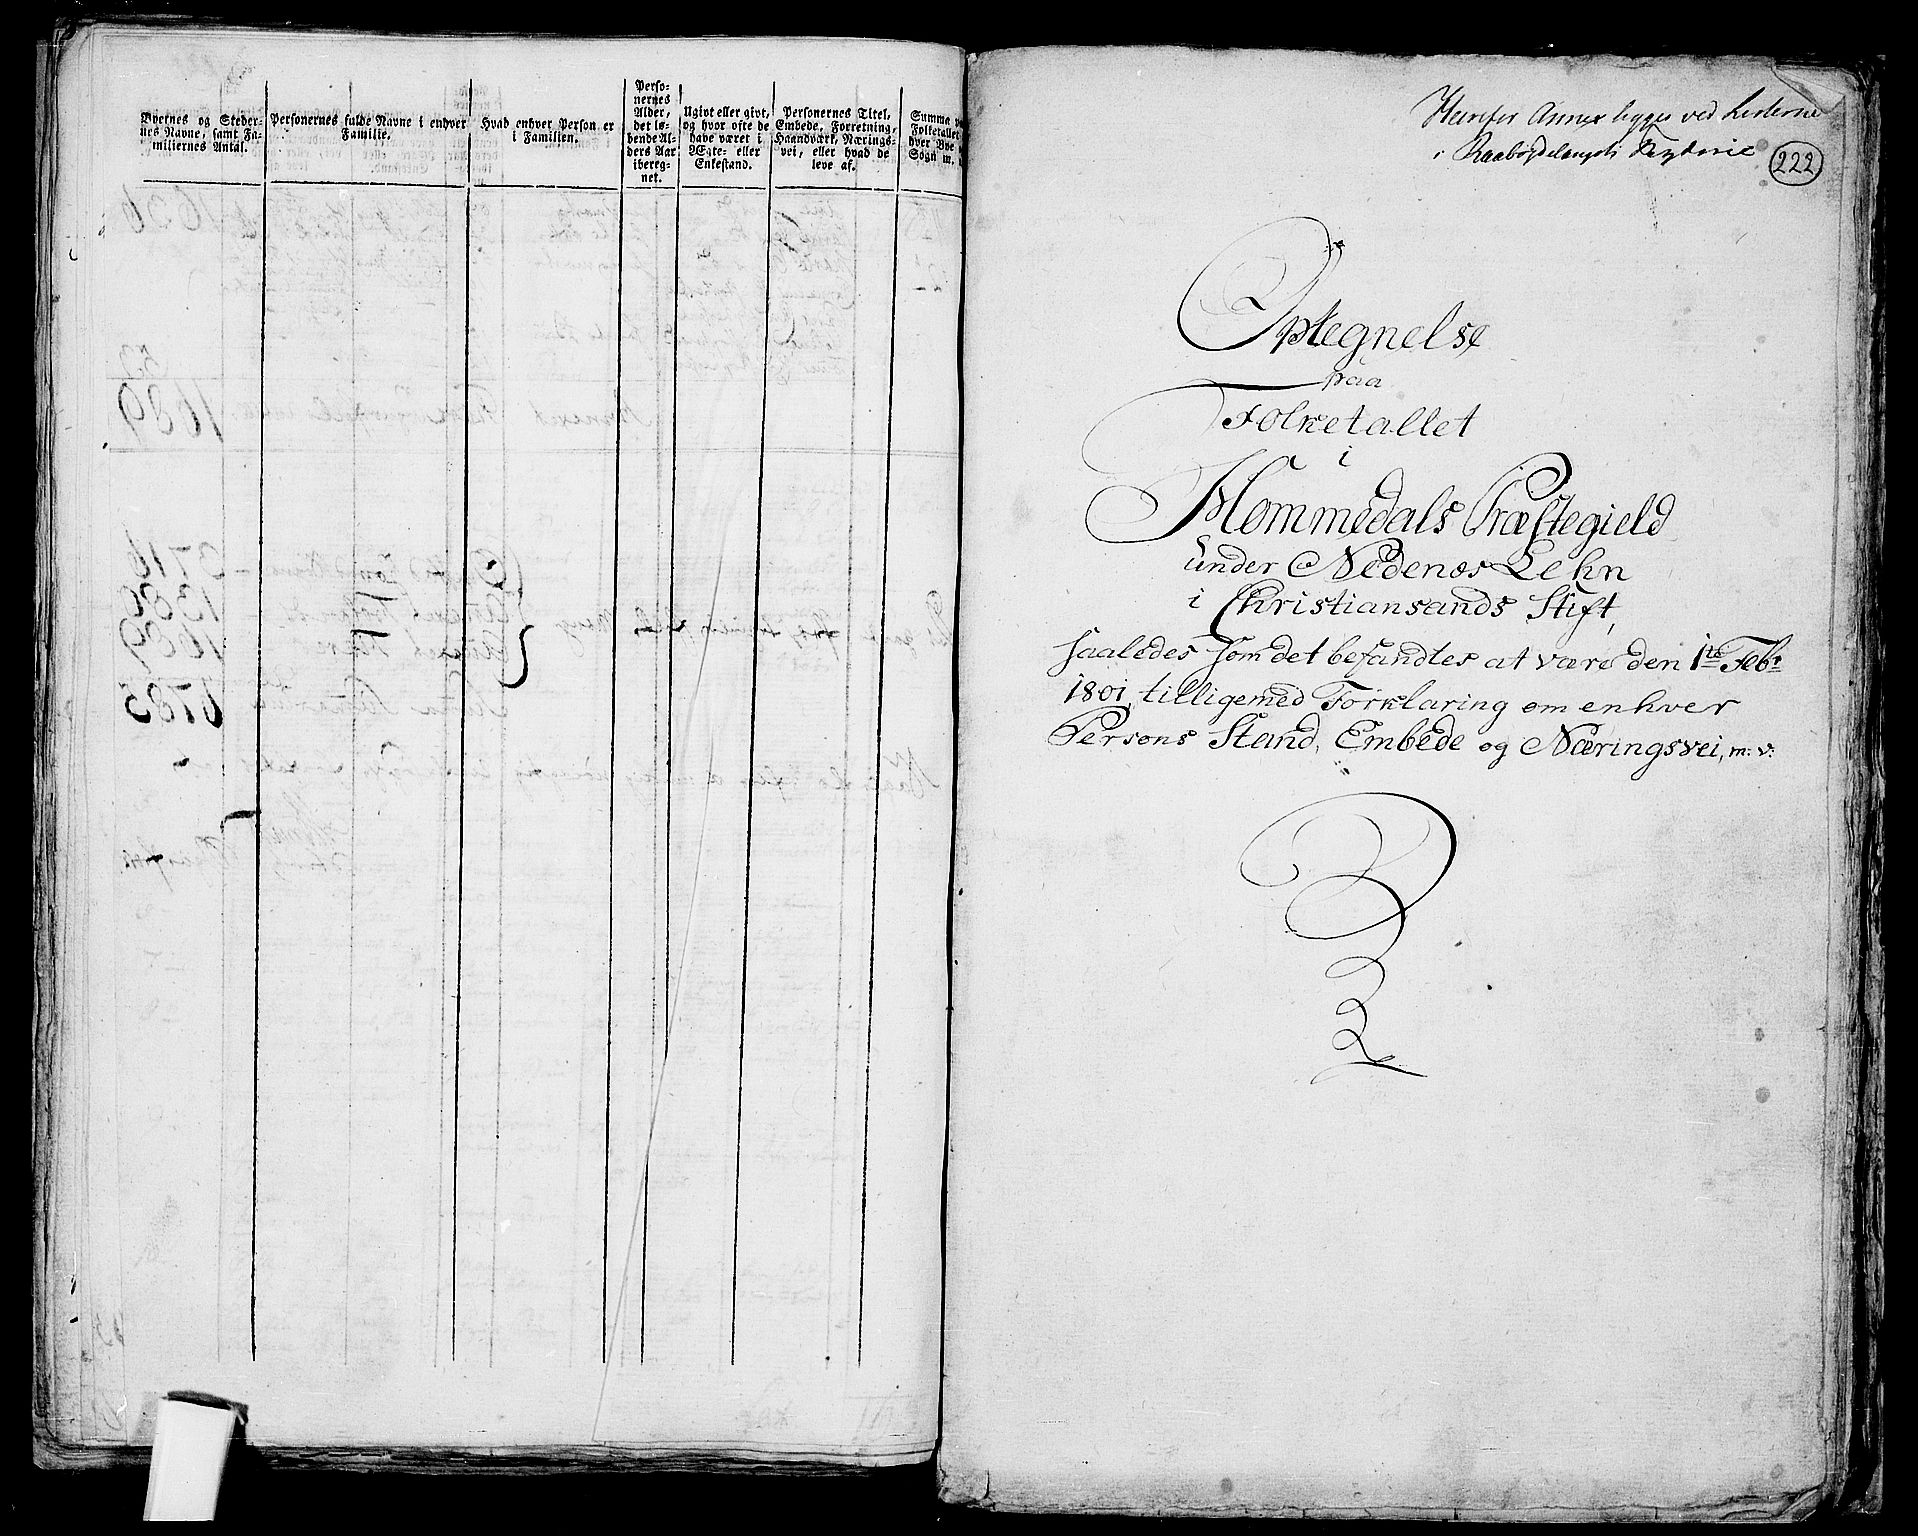 Byernes og Steder-
nes Navne, samt Fa-
miliernes Antal.
Personernes fulde Navne i enhver
Familie.
Hvad enhver Person er
i Familien.
Perso-
nernes
Alder,
det lø-
bende Al-
ders Aar
ibereg-
net.
Ugivt eller givt,
og hvor ofte de
have været i
Ægte- eller
Enkestand.
Personernes Titel,
Embede, Forretning,
Haandværk, Nærings-
vei, eller hvad de
leve af.
Summa
Folketallet
hver Bye
Sogn
Annex ligger ved Listerne
i
222
Optegnelse
paa
Folketallet
i
Hommedals Præstegield
under Nedenæs Lehn
i Christiansands Stift,
saaledes som det befandtes at være den 1te Febr
1801, tilligemed Forklaring om enhver
Persons Stand, Embede og Næringsvei, m: v: